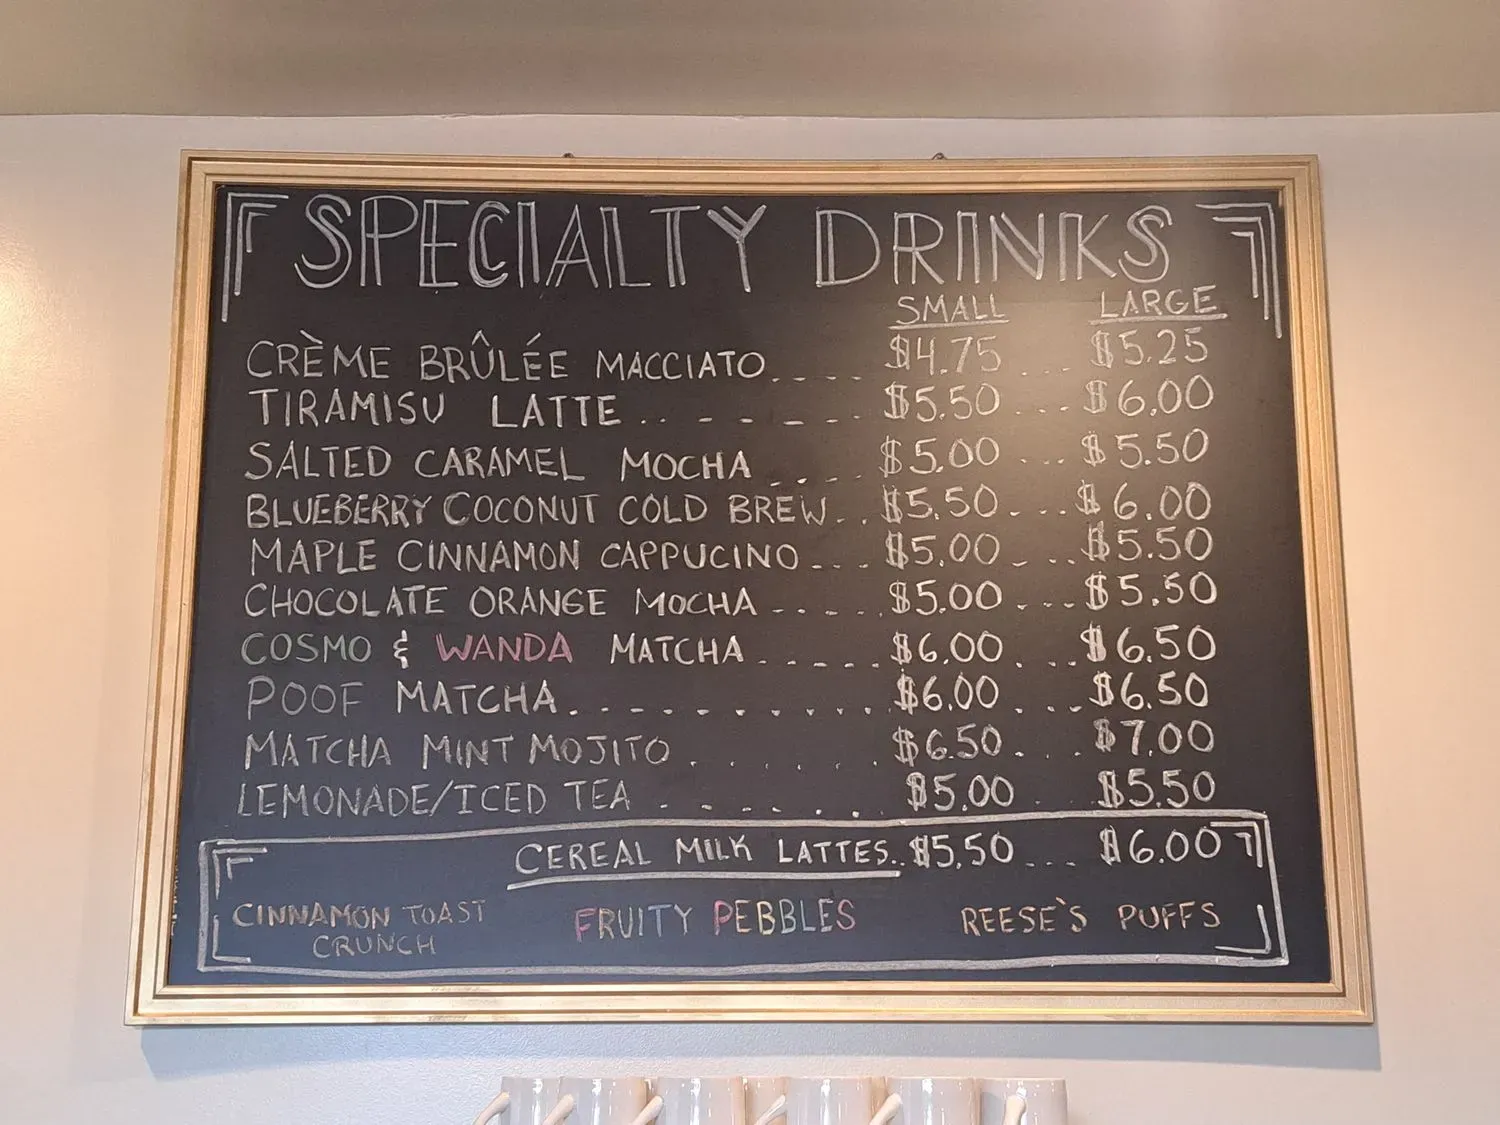 SPECIALTY DRINKS
SMALL LARGE
CRÈME BRÛLÉE MACCIATO.... $4.75 ... $5.25
TIRAMISU LATTE.. - - - - $5.50 ... $6.00
SALTED CARAMEL MOCHA .... $5.00 ... $5.50
BLUEBERRY COCONUT COLD BREW.. $5.50 ... $6.00
MAPLE CINNAMON CAPPUCINO... $5.00 ... $5.50
CHOCOLATE ORANGE MOCHA ..... $5.00 ... $5.50
COSMO & WANDA MATCHA ...... $6.00 ... $6.50
POOF MATCHA ............ $6.00 ... $6.50
MATCHA MINT MOJITO ....... $6.50 ... $7.00
LEMONADE/ICED TEA ...... $5.00 ... $5.50
CEREAL MILK LATTES.. $5.50 ... $6.00
CINNAMON TOAST CRUNCH FRUITY PEBBLES REESE'S PUFFS